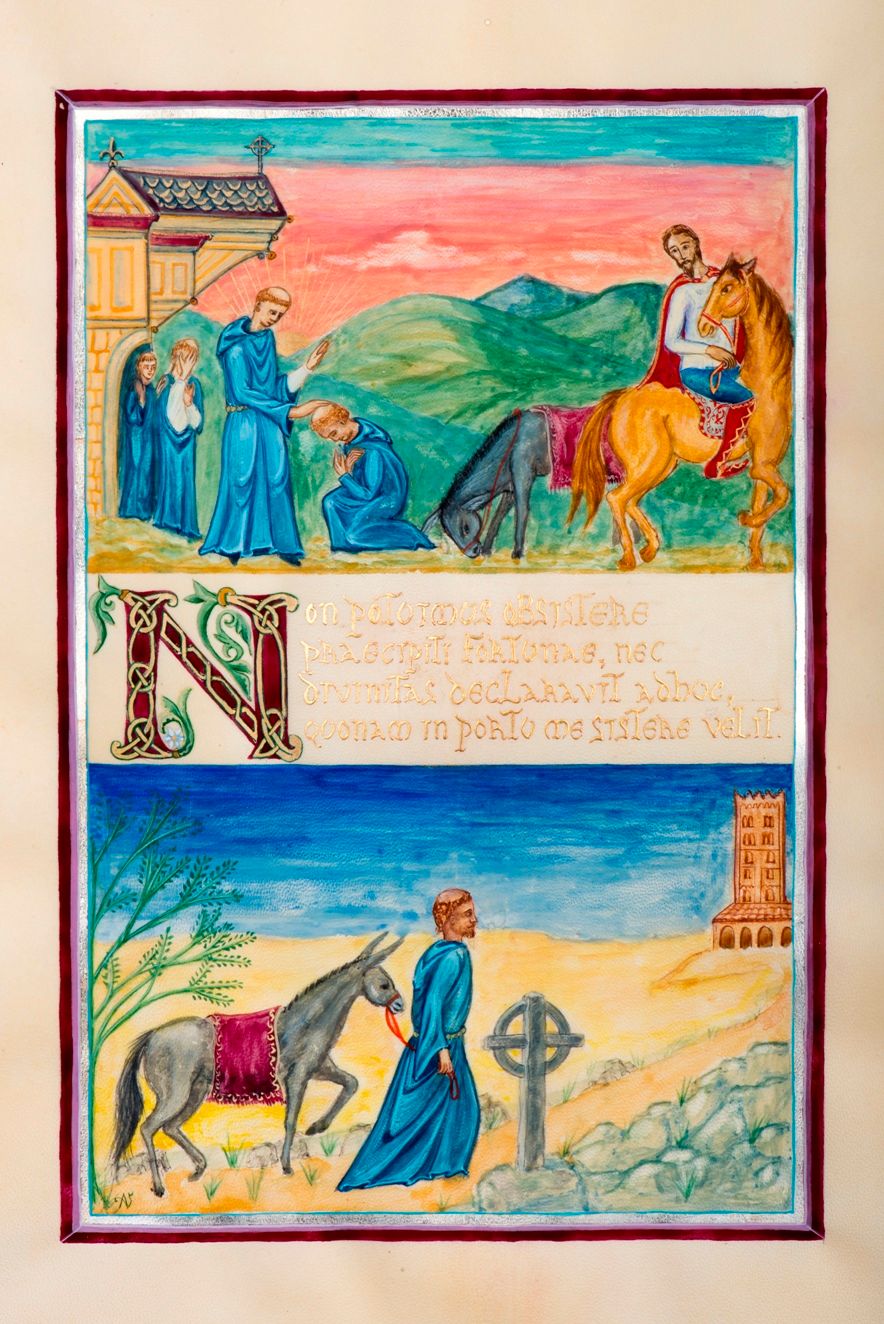 Non potuimus obsistere
praecipiti fortunae, nec
divinitas declaravit adhuc,
quonam in portu me sistere velit.